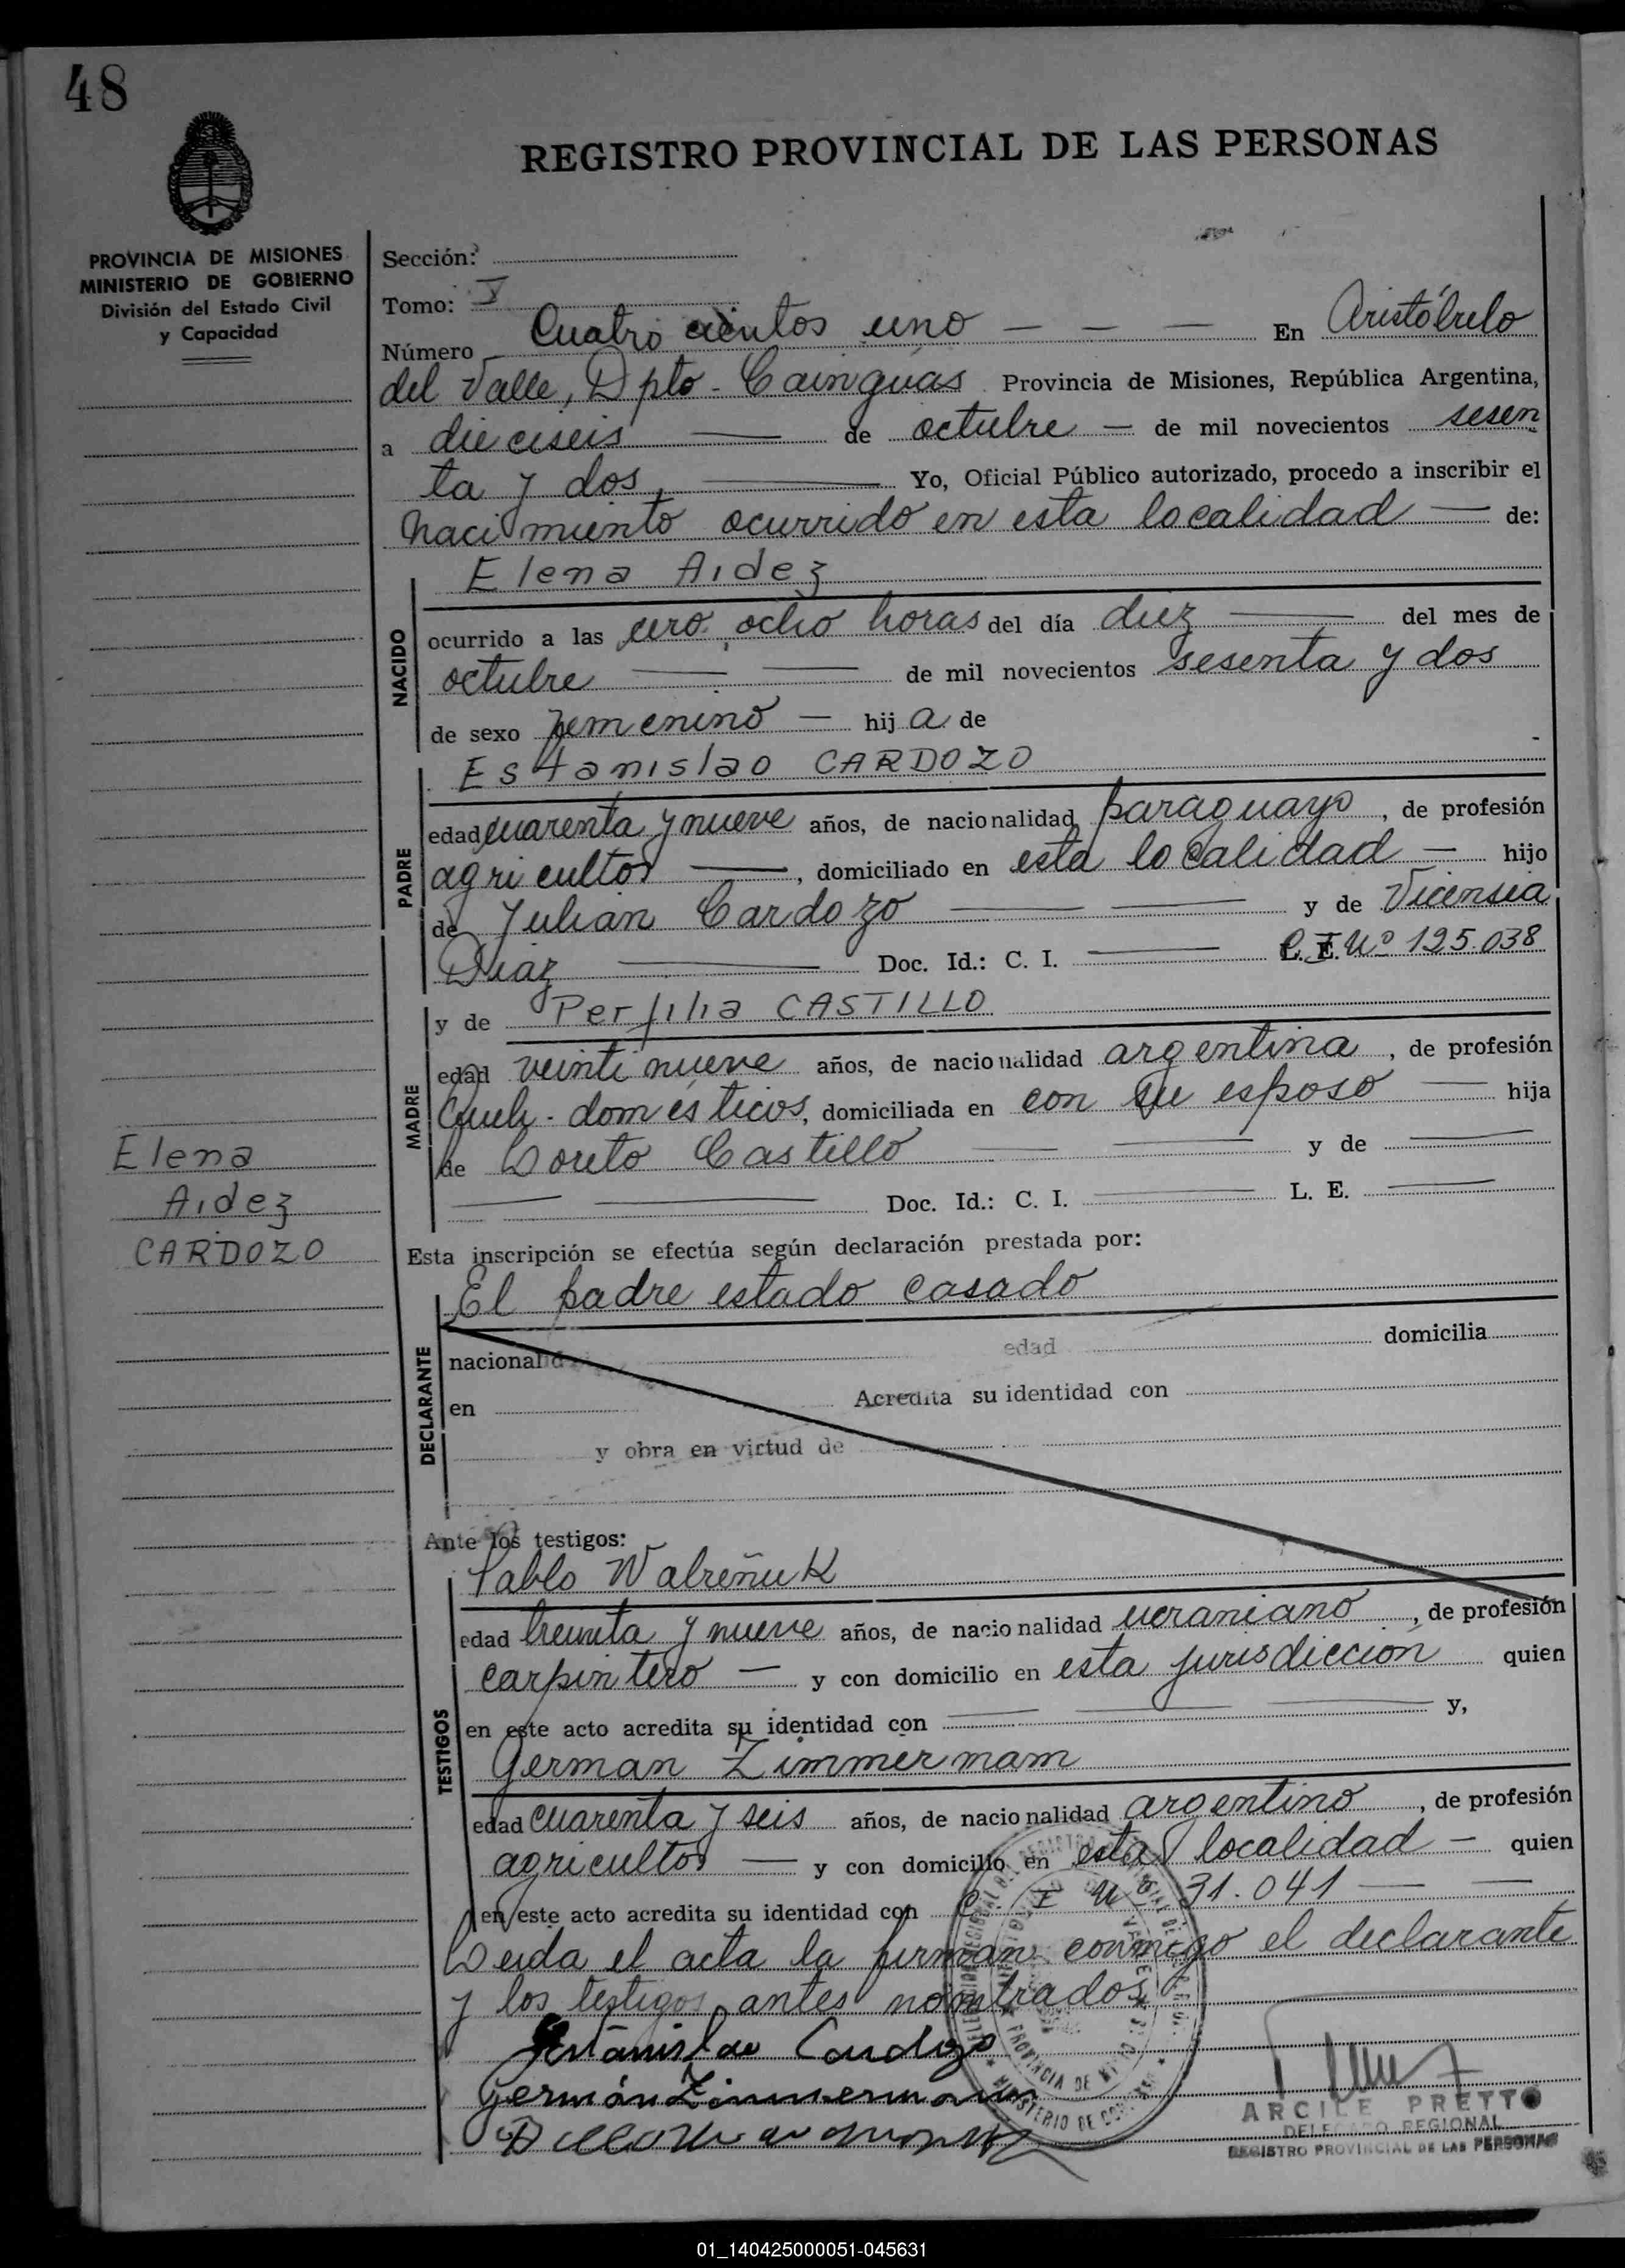 48
REGISTRO PROVINCIAL DE LAS PERSONAS
PROVINCIA DE MISIONES
MINISTERIO DE GOBIERNO
División del Estado Civil
y Capacidad
Sección:
Tomo: V
Número Cuatro cientos uno — — — En Aristóbulo
del Valle, Dpto. Cainguás Provincia de Misiones, República Argentina,
a dieciseis — de octubre — de mil novecientos sesen
ta y dos, — Yo, Oficial Público autorizado, procedo a inscribir el
nacimiento ocurrido en esta localidad — de:
Elena Aidez
NACIDO
ocurrido a las cero ocho horas del día diez — del mes de
octubre — — de mil novecientos sesenta y dos
de sexo femenino — hij a de
Estanislao CARDOZO
PADRE
edad cuarenta y nueve años, de nacionalidad paraguayo, de profesión
agricultor —, domiciliado en esta localidad — hijo
de Julian Cardozo — — y de Vicensia
Diaz — Doc. Id.: C. I. — C. I. Nº 125.038
y de Perfilia CASTILLO
MADRE
edad veintinueve años, de nacionalidad argentina, de profesión
Queh. domésticos, domiciliada en con su esposo — hija
de Loreto Castillo — — y de —
— — Doc. Id.: C. I. — L. E. —
Elena
Aidez
CARDOZO
Esta inscripción se efectúa según declaración prestada por:
El padre estado casado
DECLARANTE
nacionalid edad domicilia
en Acredita su identidad con
y obra en virtud de
Ante los testigos:
Pablo Walreñuk
TESTIGOS
edad treinta y nueve años, de nacionalidad ucraniano, de profesión
carpintero — y con domicilio en esta jurisdicción quien
en este acto acredita su identidad con — — y,
German Zimmermam
edad cuarenta y seis años, de nacionalidad argentino, de profesión
agricultor — y con domicilio en esta localidad — quien
en este acto acredita su identidad con C. I Nº 31.041 — —
Leida el acta la firman conmigo el declarante
y los testigos antes nombrados
Estanislao Cardozo
Germán Zimmermann
ARCILE PRETTO
DELEGADO REGIONAL
REGISTRO PROVINCIAL DE LAS PERSONAS
01_140425000051-045631